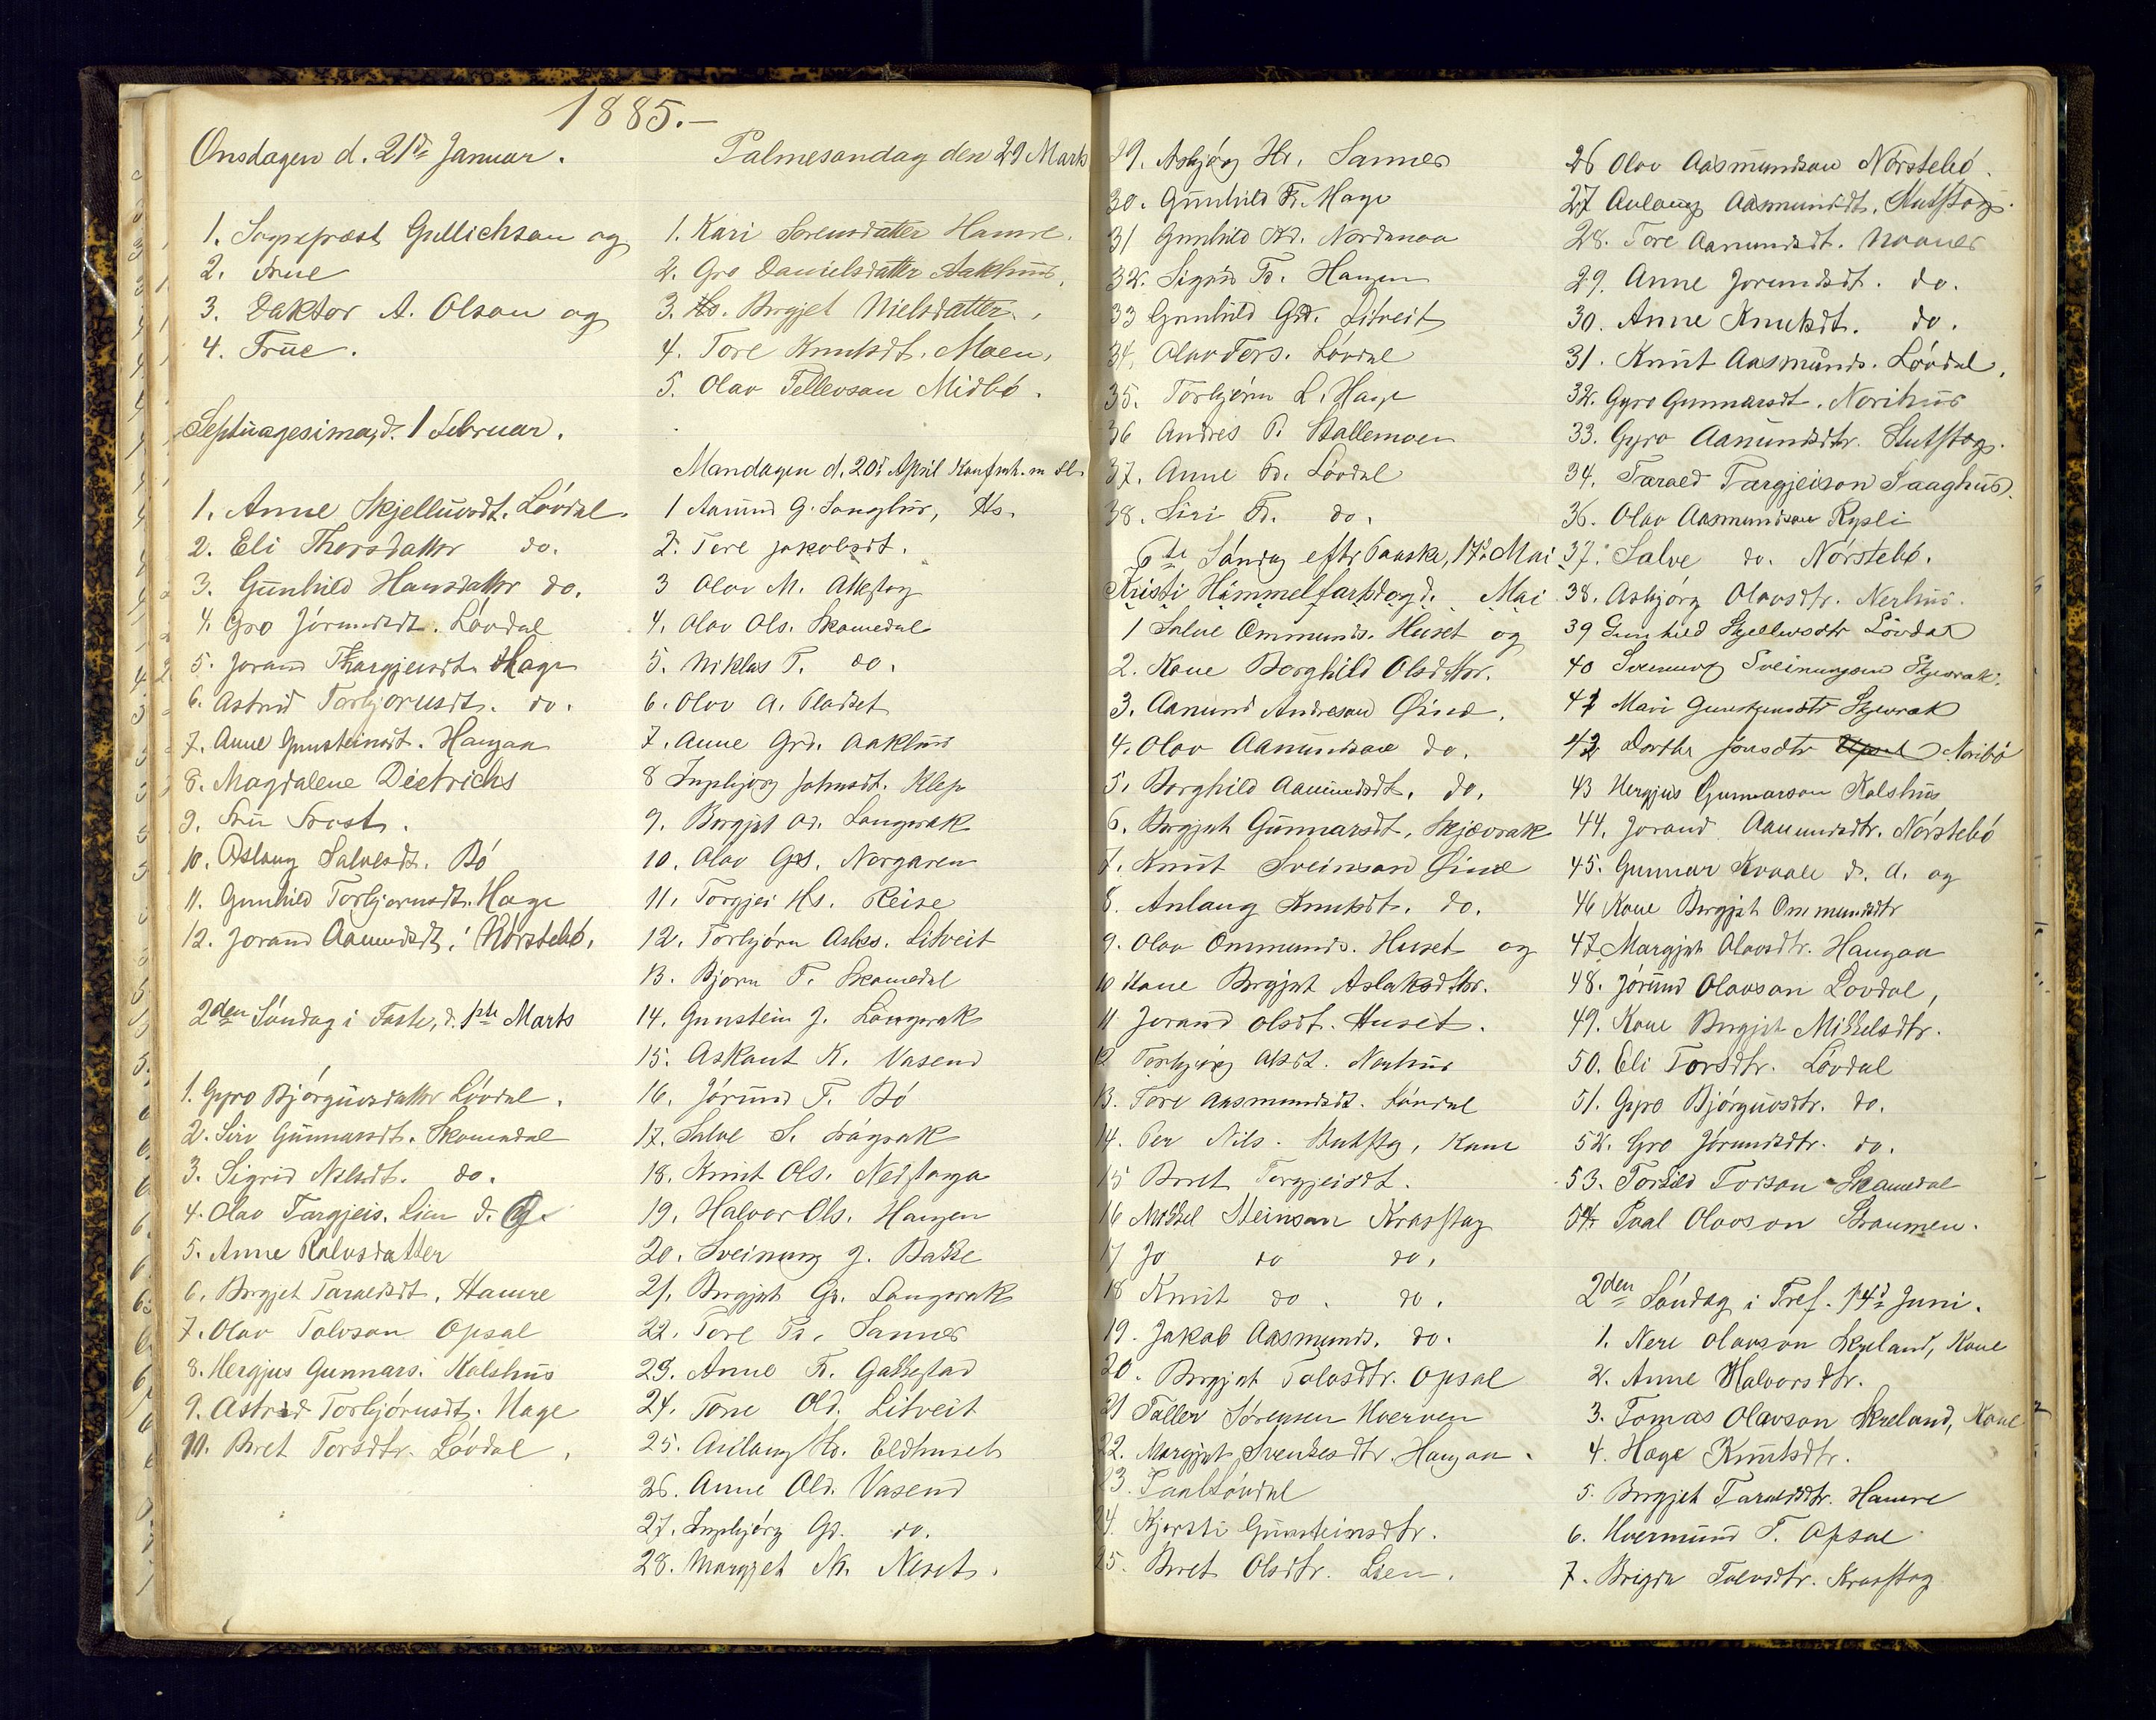 1885.-
Onsdagen d. 21de Januar.
1. Sognepræst Gullichsen og
2. Frue
3. Doktor A. Olson og
4. Frue.
Septuagesima, d. 1 Februar.
1. Anne Skjelluvsdt. Lövdal.
2. Eli Thorsdatter do.
3. Gunhild Hansdatter do.
4. Gro Jörundsdt. Lövdal
5. Jorand Thargjeisdt. Hage
6. Astrid Torbjornsdt. do.
7. Anne Gunsteinsdt. Haugaa
8. Magdalene Dietrichs
9. Fru Frost.
10. Aslaug Salvesdt. Bö
11. Gunhild Torbjornsdt. Hage
12. Jorand Aanundsdt. Nörstebö.
2den Söndag i Faste, d. 1ste Marts
1. Gyro Björguvsdatter Lövdal.
2. Siri Gunnarsdt. Skomedal
3. Sigrid Nilsdt. do.
4. Olav Targjeis. Lien d. G.
5. Anne Rolvsdatter
6. Birgjet Taraldsdt. Hamre
7. Olav Tolvson Opsal
8. Hergjus Gunnars. Kalshus
9. Astrid Torbjörnsdt. Hage
10. Biret Torsdtr. Lövdal.
Palmesondag den 29 Marts
1. Kari Sorensdatter Hamre.
2. Gro Danielsdatter Aakhus.
3. Birgjet Nielsdatter.
4. Tore Knutsdt. Moen.
5. Olav Tellevson Midbö.
Mandagen d. 20de April Konfirm. m fl.
1 Aanund G. Langhus, Hs.
2. Tore Jakobsdt.
3 Olav M.
4. Olav Ols. Skomedal
5. Niklas T. do.
6. Olav A. Pladset
7. Anne Grd. Aakhus
8 Ingebjörg Johnsdt. Klep
9. Birgjet Od. Langerak
10. Olav Gs. Norgaren
11. Torgjei Hs. Reise
12. Torbjörn Asbs. Litveit
13. Bjorn T. Skomedal
14. Gunstein J. Langerak
15. Askaut K. Vasend
16. Jörund T. Bö
17. Salve S.
18. Knut Ols.
19. Halvor Ols. Haugen
20. Sveinung J. Bakke
21. Birgjet Gd. Langerak
22. Tore Td. Sannes
23. Anne
24. Tone Old. Litveit
25. Auslaug Hd. Eldhuset
26. Anne Old. Vasend
27. Ingebjörg Gd. do.
28. Margjet Neset.
29. Asbjörg Hd. Sannes
30. Gunhild Td. Hage
31 Gunhild Kd. Nordmoa
32. Sigrid Td. Haugen
33 Gunhild Grd. Litveit
34. Olav Tors. Lövdal
35. Torbjörn L. Hage
36 Andres P. Stallemoen
37. Anne Od. Lövdal
38. Siri Td. do.
6te Söndag eftr Paaske, 17de Mai
Kristi Himmelfartsdag d. Mai
1 Salve Ommunds. Huset og
2. Kone Borghild Olsdttr.
3. Aanund Andreson Öine.
4. Olav Aanundson do.
5. Borghild Aanundsdt. do.
6. Birgjet Gunnarsdt. Skjævrak
7. Knut Sveinson Öine
8. Aslaug Knutsdt. do.
9. Olav Ommunds. Huset og
10 Kone Birgjet Aslaksdttr.
11 Jorand Olsdt. Huset.
12 Torbjörg Nerhus
13. Tore Aasmundsdt. Lövdal
14. Per Nils. Kone
15 Biret Torgjeisdt.
16 Mikkel Steinson
17 Jo do do.
18 Knut do. do.
19. Jakob Aasmunds. do.
20. Birgjet Tolvsdtr. Opsal
21 Tallev Sörensen Kverven
22. Margjet Svenkesdtr. Haugaa.
23. Paal Lövdal
24. Kjersti Gunsteinsdtr.
25. Biret Olsdtr. Lien.
26 Olav Aasmundson Nörstebö.
27 Aslaug Aasmundsdt.
28. Tore Aanundsdt. Moanes
29. Anne Jorundsdt. do.
30. Anne Knutsdt. do.
31. Knut Aasmunds. Lövdal.
32. Gyro Gunnarsdt. Norihus
33. Gyro Aanundsdtr.
34. Tarald Targjeison Saaghus.
36. Olav Aasmundson Rysli
37. Salve do. Nörstebö.
38. Asbjörg Olavsdtr. Nerhus.
39 Gunhild Skjelluvsdtr Lövdal
40 Sveinung Sveinungson Skjevrak.
41 Mari Gunsteinsdtr Skjevrak
42 Dorthe Jonsdtr Noribö
43 Hergjus Gunnarson Kalshus
44. Jorand Aanundsdtr. Nörstebö
45. Gunnar Kvaale d. a. og
46 Kone Birgjet Ommundsdtr
47. Margjet Olavsdtr. Haugaa
48. Jörund Olavson Lovdal,
49. Kone Birgjet Mikkelsdtr.
50. Eli Torsdtr. Lövdal
51. Gyro Björguvsdtr. do.
52. Gro Jörundsdtr. do.
53. Torkild Torson Skomedal
54. Paal Olavson Straumen.
2den Söndag i Tref. 14de Juni.
1. Neri Olavson Skreland, Kone
2. Anne Halvorsdtr.
3. Tomas Olavson Skreland, Kone
4. Hæge Knutsdtr.
5. Birgjet Taraldsdtr. Hamre
6. Kvermund T. Opsal
7. Brigda Tolvsdtr.